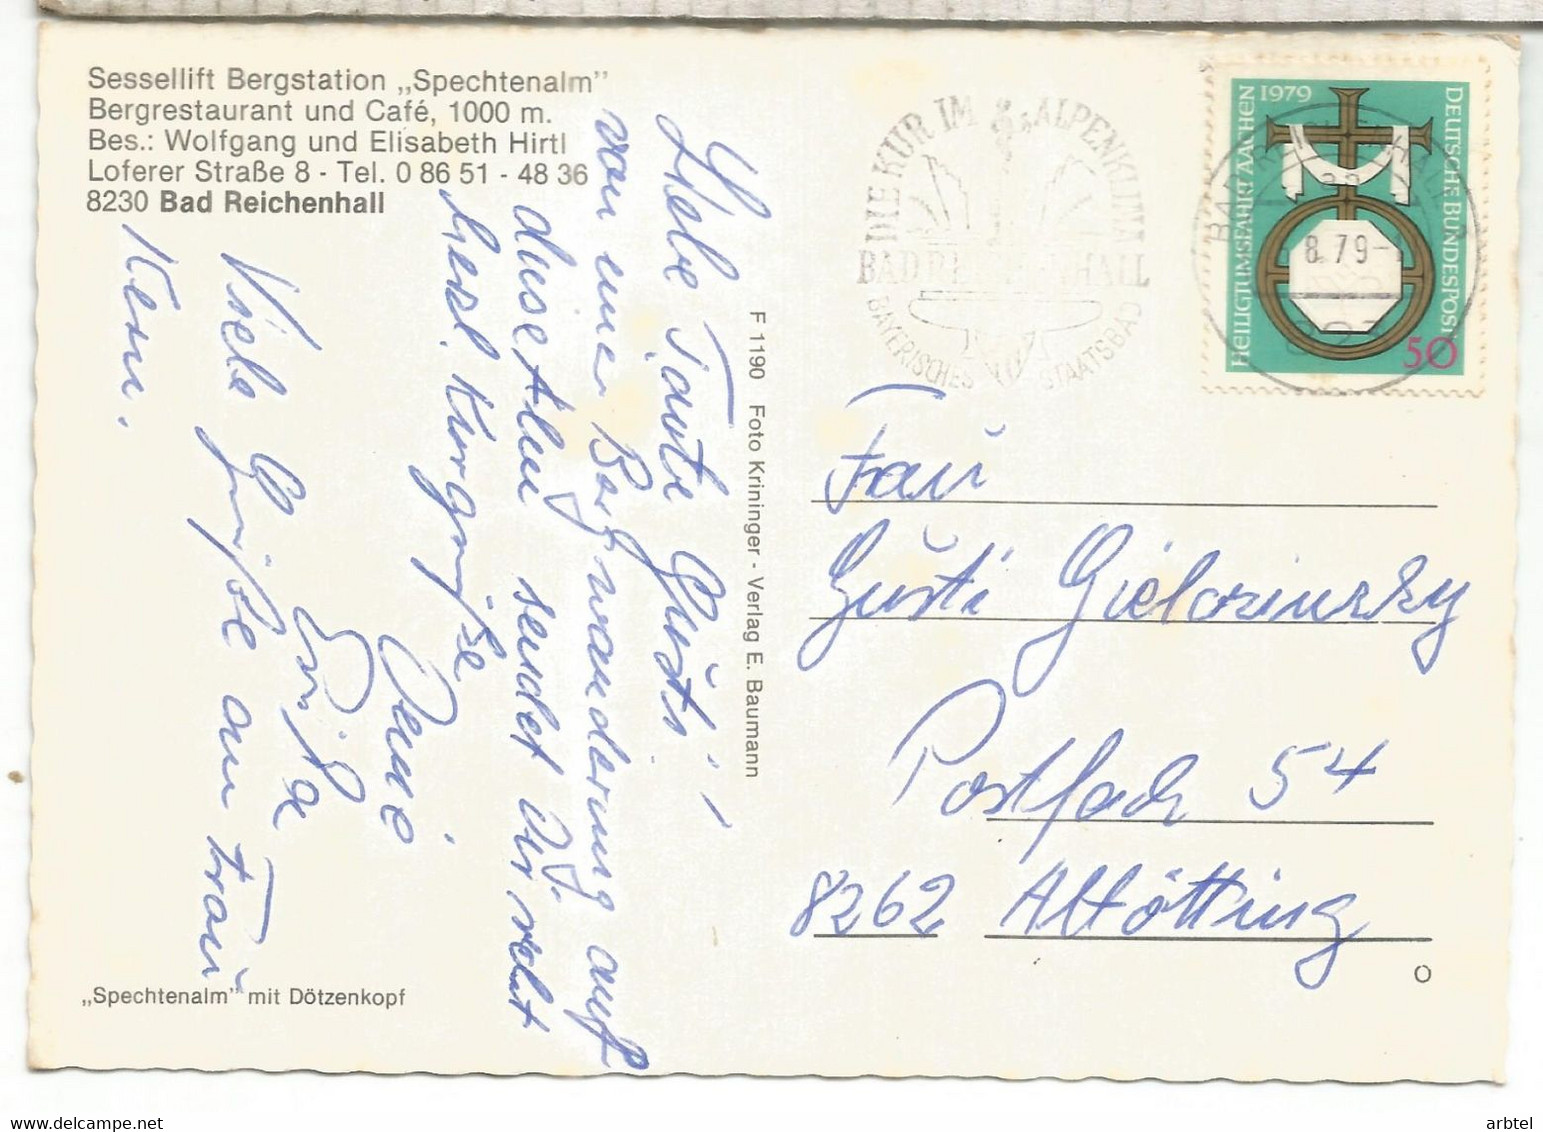 Sessellift Bergstation „Spechtenalm”
Bergrestaurant und Café, 1000 m.
Bes.: Wolfgang und Elisabeth Hirtl
Loferer Straße 8 - Tel. 0 86 51 - 48 36
8230 Bad Reichenhall
Liebe Tante Gusti!
von einer Bergwanderung auf
diese Alm sendet Dir recht
herzl. Kurgrüße
Deine
Viele Grüße an Frau
Kern.
„Spechtenalm” mit Dötzenkopf
F 1190 Foto Krininger - Verlag E. Baumann
DIE KUR IM ALPENKLIMA
BAD REICHENHALL
BAYERISCHES STAATSBAD
HEILIGTUMSFAHRT AACHEN 1979
DEUTSCHE BUNDESPOST
50
8.79-
Frau
Gusti Gielczinsky
Postfach 54
8262 Altötting
arbtel